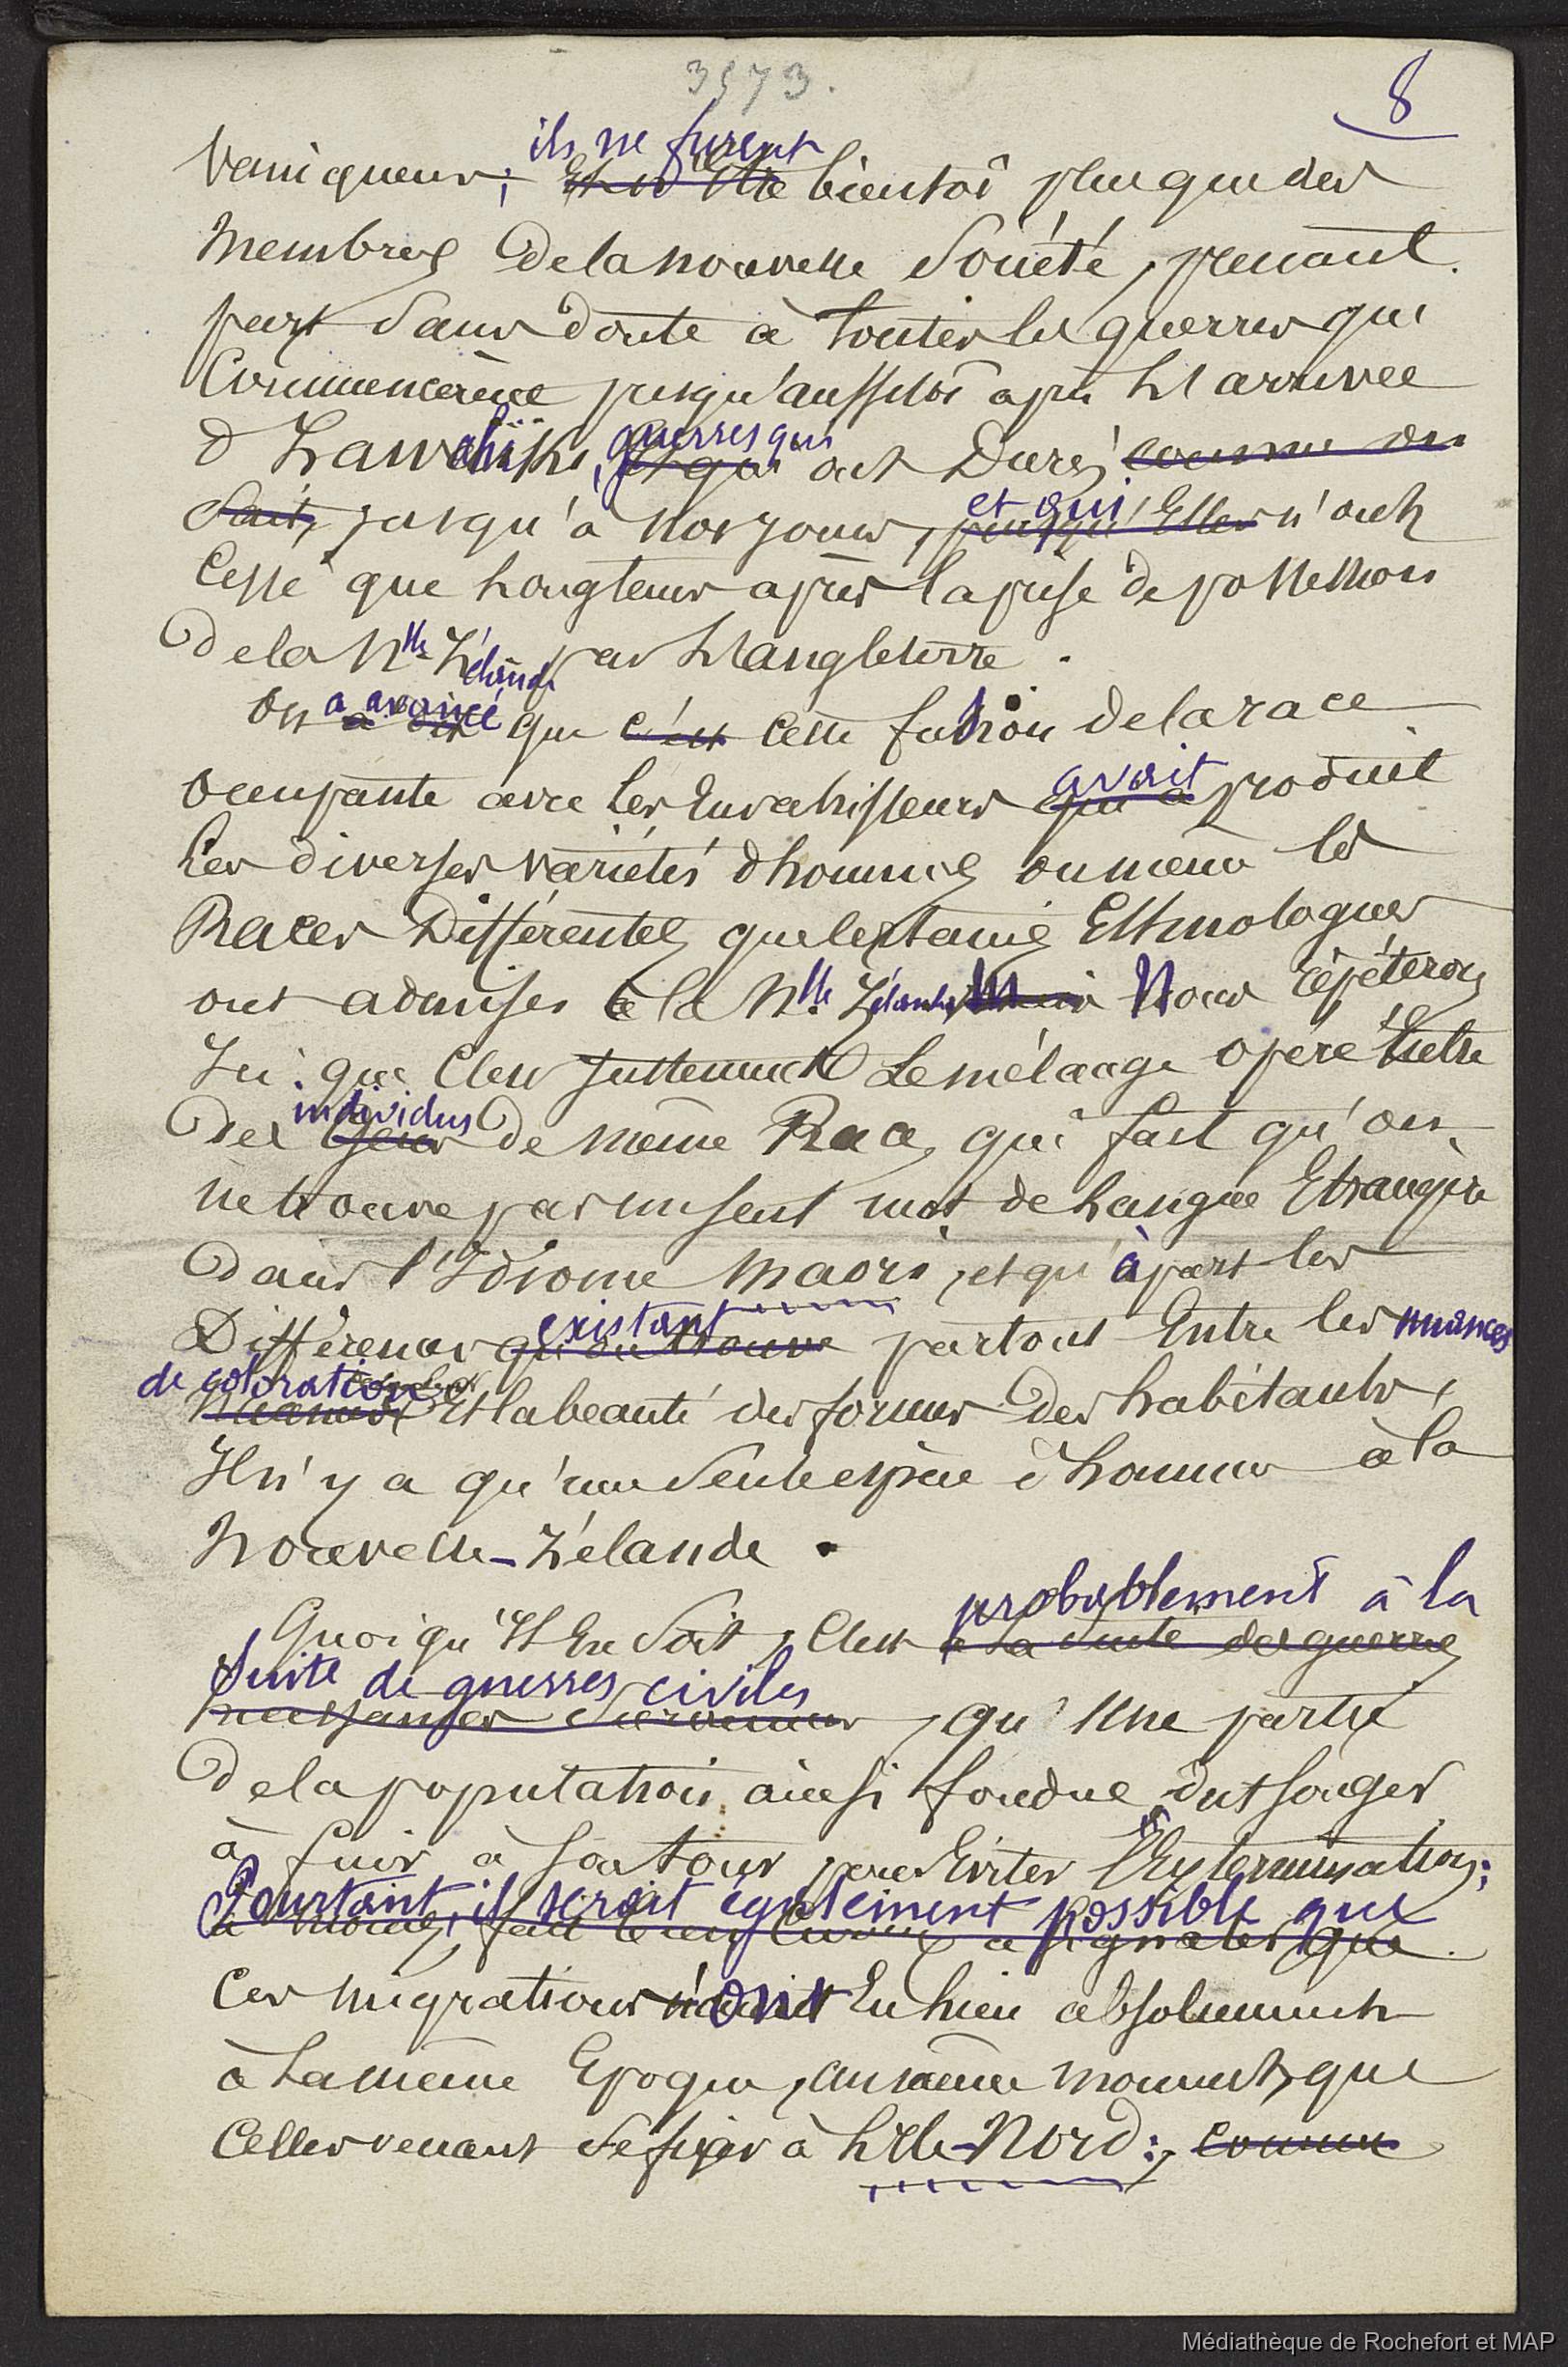 3573.
8
Vainqueurs; ils ne furent
~~Et n'être~~ bientôt plus que des
Membres de la nouvelle Société, prenant
part sans doute à toutes les guerres qui
Commencèrent presqu'aussitôt après l'arrivée
d'Hawahiki, guerres qui ~~et qui~~ ont Duré, ~~comme on~~
~~sait,~~ jusqu'à nos jours, et qui ~~puisqu'Elles~~ n'ont
Cessé que longtems après la prise de possession
de la Nlle Zélande par l'angleterre.
On a avancé ~~a dit~~ que ~~c'est~~ cette fusion de la race
occupante avec les Envahisseurs avait ~~qui a~~ produit
les diverses variétés d'hommes ou même les
Races Différentes que certains Ethnologues
ont admises à la Nlle Zélande. ~~Mais~~ Nous répéterons
Ici que C'est justement Le mélange opéré Entre
des individus ~~gens~~ de même Race, qui fait qu'on
ne trouve pas un seul mot de langue Etrangère
dans l'Idiome Maori, et qu'à part les
Différences existant ~~qu'on trouve~~ partout Entre les nuances
de coloration ~~nuances~~ Et la beauté des formes des habitants,
Il n'y a qu'une seule espèce d'hommes à la
Nouvelle-Zélande.
Quoiqu'Il En Soit, C'est probablement à la ~~à la suite des guerres~~
suite de guerres civiles ~~survenues~~, qu'Une partie
de la population ainsi fondue dut songer
à fuir à son tour pour Eviter l'Extermination;
Pourtant, il serait également possible que ~~à signaler que~~
Ces migrations ont Eu lieu absolument
à la même Epoque, au même moment, que
Celles venant se fixer à l'Ile-Nord: ~~comme~~
Médiathèque de Rochefort et MAP